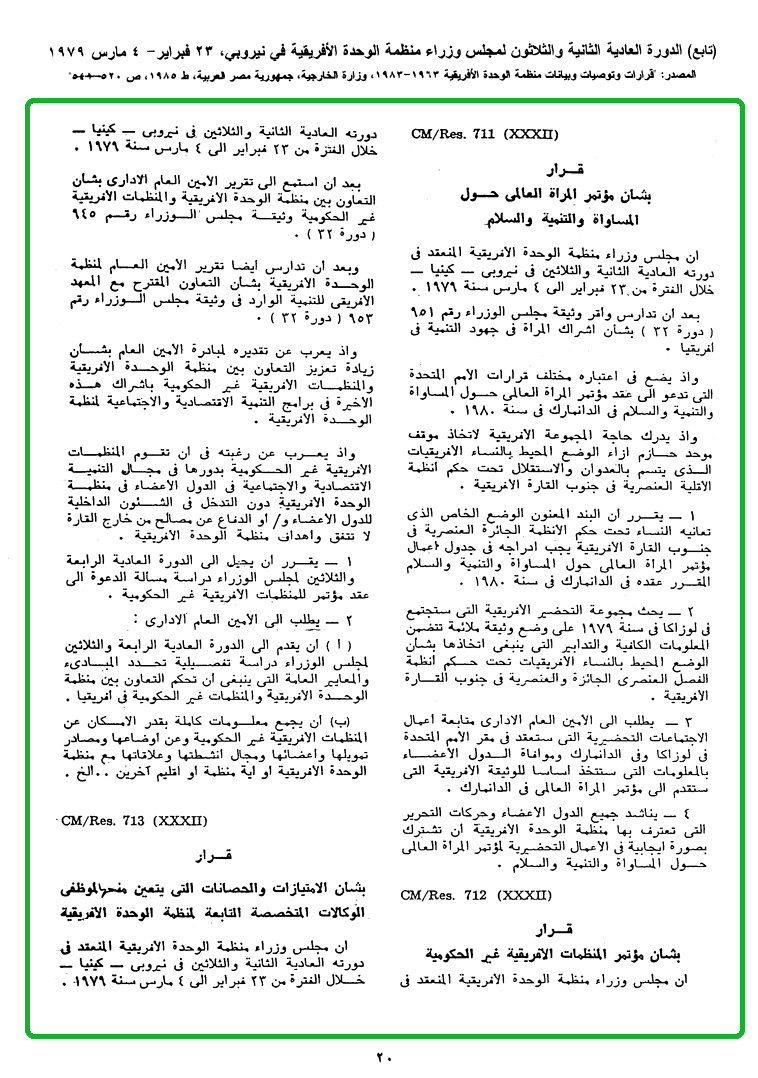 (تابع) الدورة العادية الثانية والثلاثون لمجلس وزراء منظمة الوحدة الأفريقية في نيروبي، ٢٣ فبراير- ٤ مارس ١٩٧٩
المصدر: "قرارات وتوصيات وبيانات منظمة الوحدة الأفريقية ١٩٦٣-١٩٨٣، وزارة الخارجية، جمهورية مصر العربية، ط ١٩٨٥، ص ٥٢٠-٥٤٨"
CM/Res. 711 (XXXII)
قــرار
بشان مؤتمر المرأة العالمى حــول
المساواة والتنمية والسلام
ان مجلس وزراء منظمة الوحدة الأفريقية المنعقد فى
دورته العادية الثانية والثلاثين فى نيروبى — كينيا —
خلال الفترة من ٢٣ فبراير الى ٤ مارس سنة ١٩٧٩ .
بعد ان تدارس واقر وثيقة مجلس الوزراء رقم ٩٥١
( دورة ٣٢ ) بشأن اشراك المرأة فى جهود التنمية فى
افريقيا .
واذ يضع فى اعتباره مختلف قرارات الامم المتحدة
التى تدعو الى عقد مؤتمر المرأة العالمى حــول المساواة
والتنمية والسلام فى الدانمارك فى سنة ١٩٨٠ .
واذ يدرك حاجة المجموعة الأفريقية لاتخاذ موقف
موحد حــازم ازاء الوضع المحيط بالنساء الأفريقيات
الــذى يتسم بالعدوان والاستقلال تحت حكم أنظمة
الاقلية العنصرية فى جنوب القارة الأفريقية .
١ — يقــرر ان البند المعنون الوضع الخاص الذى
تعانيه النساء تحت حكم الأنظمة الجائرة العنصرية فى
جنــوب القارة الأفريقية يجب ادراجه فى جدول أعمال
مؤتمر المرأة العالمى حول المساواة والتنمية والسلام
المقــرر عقده فى الدانمارك فى سنة ١٩٨٠ .
٢ — يحث مجموعة التحضير الأفريقية التى ستجتمع
فى لوزاكا فى سنة ١٩٧٩ على وضع وثيقة ملائمة تتضمن
المعلومات الكافية والتدابير التى ينبغى اتخاذها بشأن
الوضع المحيط بالنساء الأفريقيات تحت حــكم أنظمة
الفصل العنصرى الجائزة والعنصرية فى جنوب القــارة
الأفريقية .
٣ — يطلب الى الأمين العام الادارى متابعة أعمال
الاجتماعات التحضيرية التى ستعقد فى مقر الأمم المتحدة
فى لوزاكا وفى الدانمارك وموافاة الــدول الأعضــاء
بالمعلومات التى ستتخذ اساسا للوثيقة الأفريقية التى
ستقدم الى مؤتمر المرأة العالمى فى الدانمارك .
٤ — يناشد جميع الدول الأعضاء وحركات التحرير
التى تعترف بها منظمة الوحدة الأفريقية ان تشترك
بصورة ايجابية فى الاعمال التحضيرية لمؤتمر المرأة العالمى
حــول المساواة والتنمية والسلام .
CM/Res. 712 (XXXII)
قــرار
بشان مؤتمر المنظمات الأفريقية غير الحكومية
ان مجلس وزراء منظمة الوحدة الأفريقية المنعقد فى
دورته العادية الثانية والثلاثين فى نيروبى — كينيا —
خلال الفترة من ٢٣ فبراير الى ٤ مارس سنة ١٩٧٩ .
بعد ان استمع الى تقرير الأمين العام الادارى بشأن
التعاون بين منظمة الوحدة الأفريقية والمنظمات الأفريقية
غير الحكومية وثيقــة مجلس الــوزراء رقــم ٩٤٥
( دورة ٣٢ ) .
وبعد ان تدارس ايضا تقرير الأمين العــام لمنظمة
الوحــدة الأفريقية بشأن التعاون المقترح مع المعهد
الأفريقى للتنمية الوارد فى وثيقة مجلس الــوزراء رقم
٩٥٣ ( دورة ٣٢ ) .
واذ يعرب عن تقديره لمبادرة الأمين العام بشــأن
زيادة تعزيز التعاون بين منظمة الوحــدة الأفريقية
والمنظمــات الأفريقية غير الحكومية باشراك هــذه
الاخيرة فى برامج التنمية الاقتصادية والاجتماعية لمنظمة
الوحــدة الأفريقية .
واذ يعــرب عن رغبته فى ان تقــوم المنظمــات
الأفريقية غير الحــكومية بدورها فى مجــال التنميــة
الاقتصادية والاجتماعية فى الدول الأعضاء فى منظمــة
الوحدة الأفريقية دون التدخل فى الشــئون الداخلية
للدول الأعضاء و/ او الدفاع عن مصالح من خارج القارة
لا تتفق وأهداف منظمة الوحدة الأفريقية .
١ — يقــرر ان يحيل الى الدورة العادية الرابعة
والثلاثين لمجلس الوزراء دراسة مسالة الدعوة الى
عقد مؤتمر للمنظمات الأفريقية غير الحكومية .
٢ — يطلب الى الأمين العام الادارى :
( أ ) ان يقدم الى الدورة العادية الرابعة والثلاثين
لمجلس الوزراء دراسة تفصــيلية تحدد المبــادىء
والمعايير العامة التى ينبغى ان تحكم التعاون بين منظمة
الوحــدة الأفريقية والمنظمات غير الحكومية فى افريقيا .
(ب) أن يجمع معلــومات كاملة بقدر الامــكان عن
المنظمات الأفريقية غير الحكومية وعن أوضاعها ومصادر
تمويلها وأعضائها ومجال انشطتها وعلاقاتها مع منظمة
الوحدة الأفريقية او اية منظمة او اقليم آخرين ..الخ .
CM/Res. 713 (XXXII)
قــرار
بشان الامتيازات والحصانات التى يتعين منحها لموظفى
الوكالات المتخصصة التابعة لمنظمة الوحدة الأفريقية
ان مجلس وزراء منظمة الوحدة الأفريقية المنعقد فى
دورته العادية الثانية والثلاثين فى نيروبى — كينيا —
خــلال الفترة من ٢٣ فبراير الى ٤ مارس سنة ١٩٧٩ .
٢٠